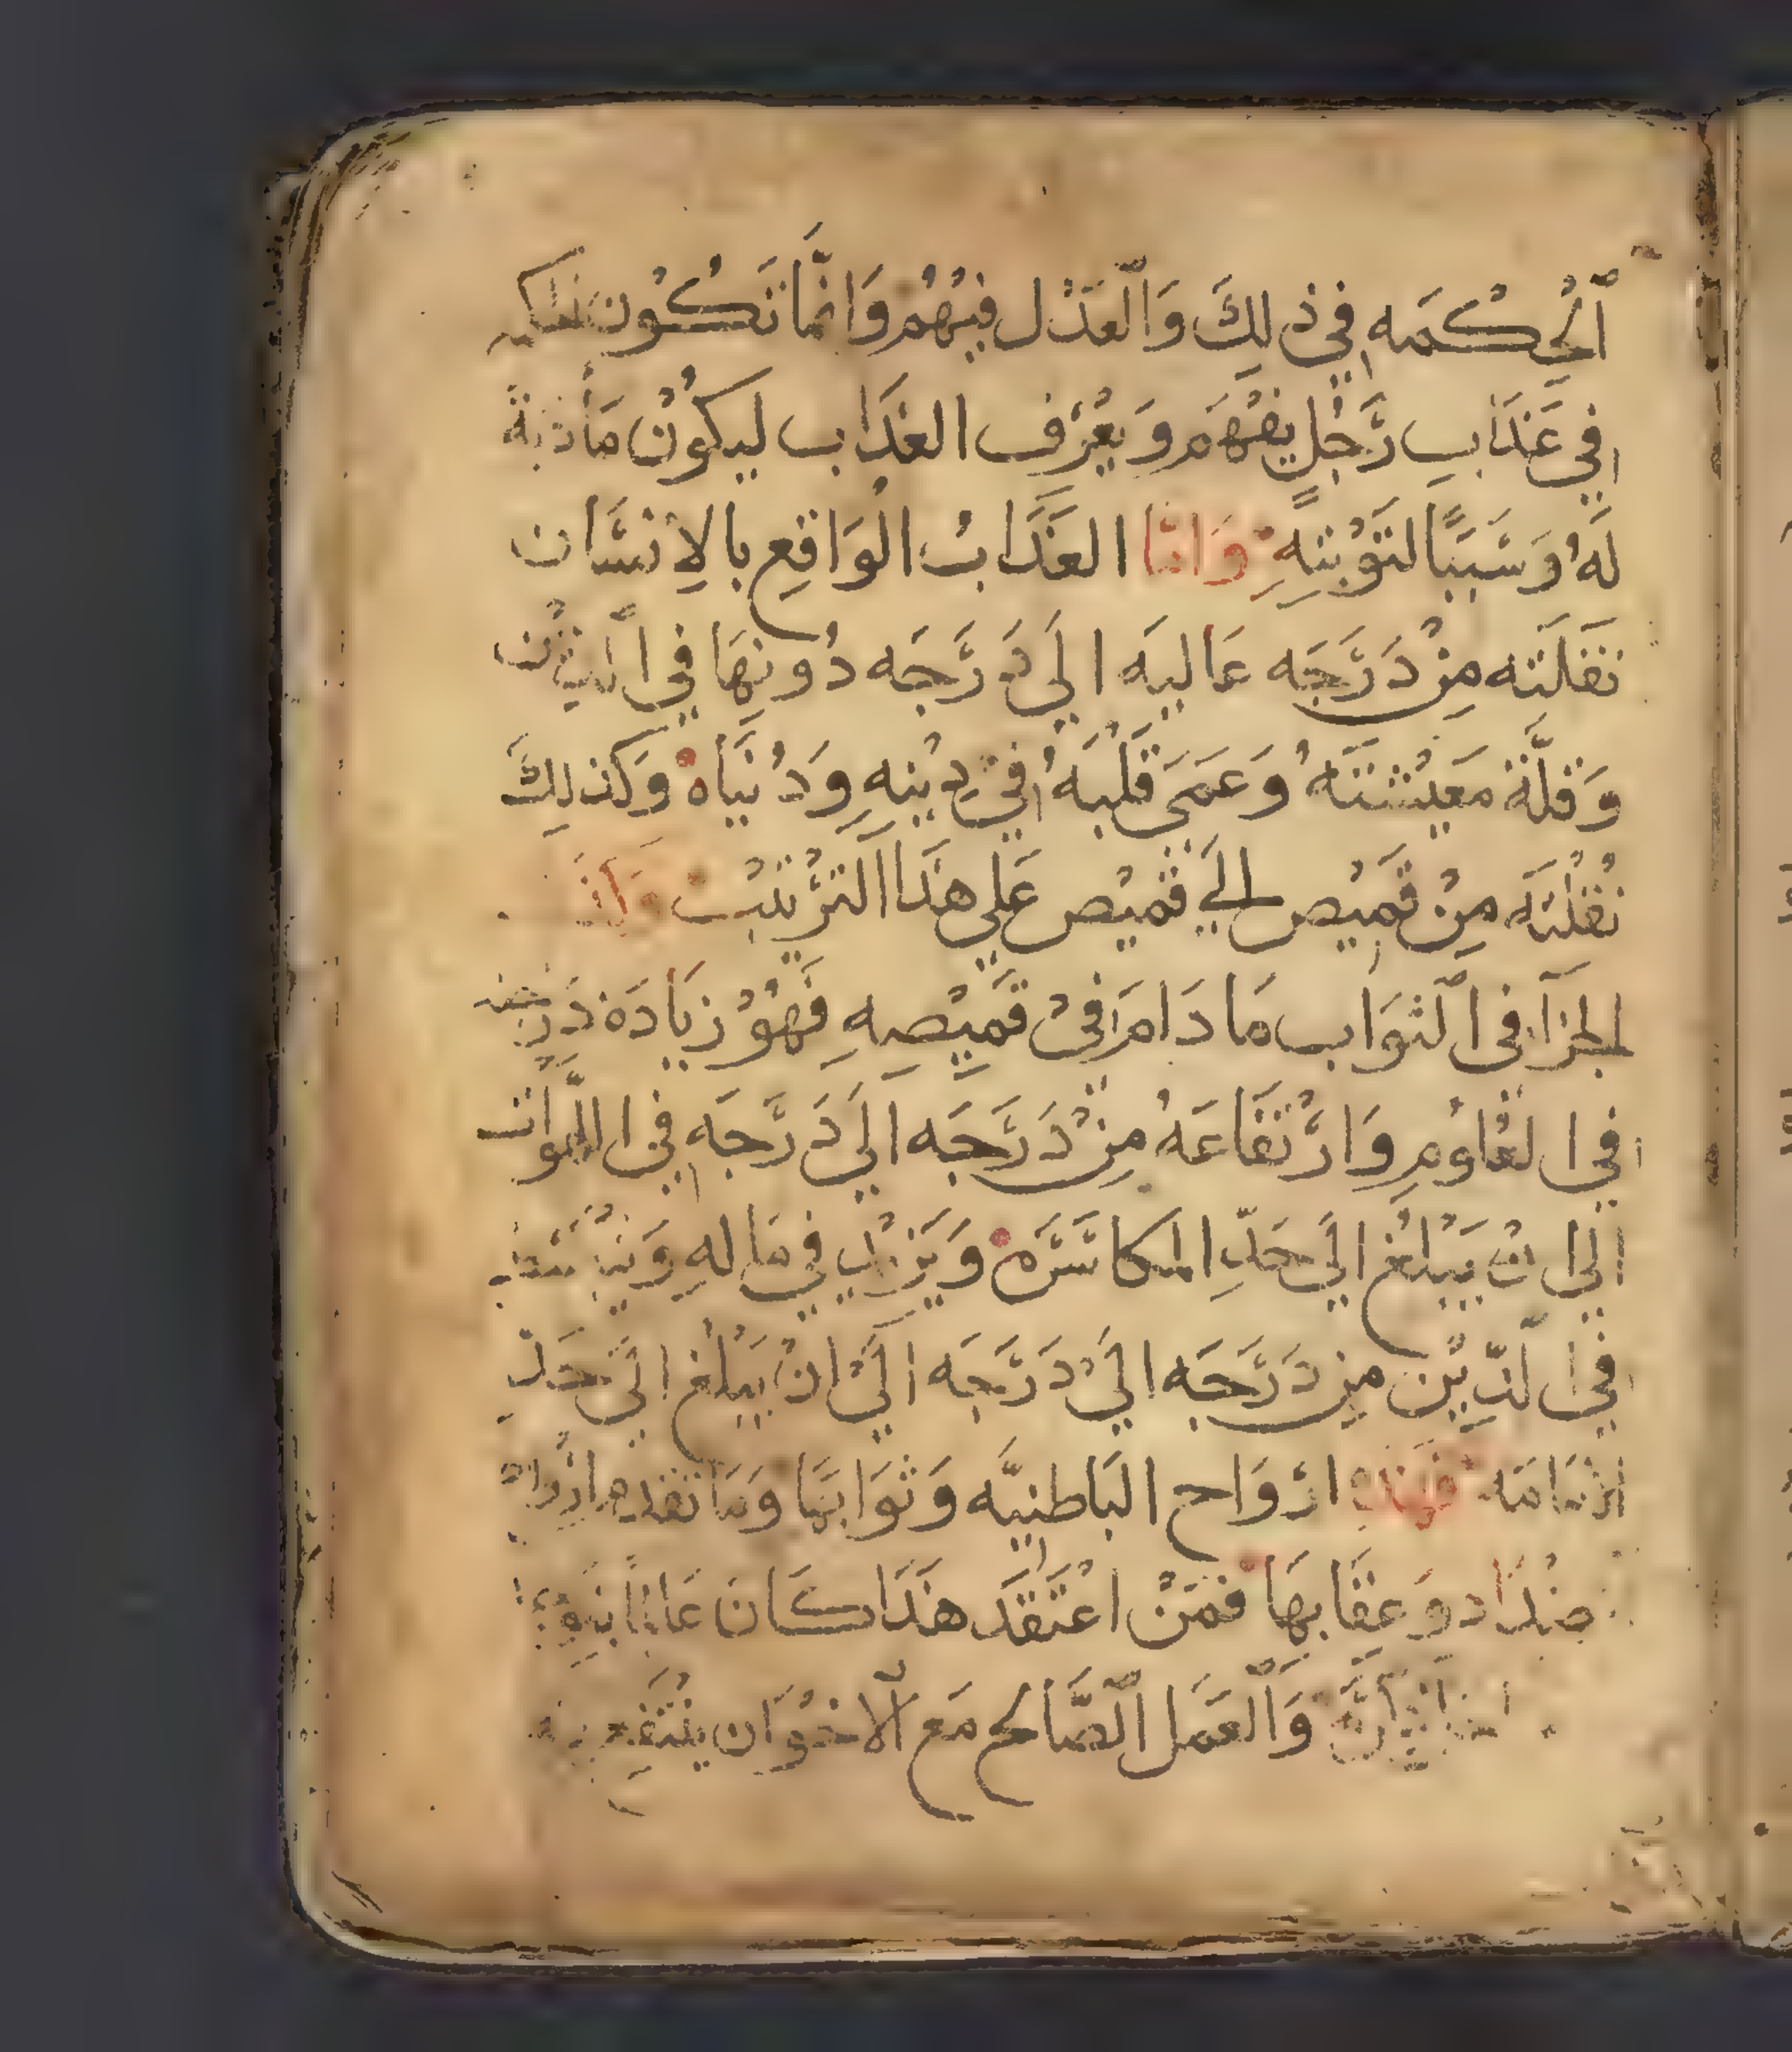 ٱلْحِكْمَه فِي ذلِكَ وَٱلْعَدْل فِيْهُمْ وَانَّمَا تَكُوْن
فِي عَذَابِ رَجُلٍ يَفْهَم وَيَعْرَف العَذَاب ليكُوْن مَأْدَبةً
لَهُ وَسَبَبًا لتَوْبَتِهِ وَامَّا العَذَابُ الْوَاقِع بالاِنْسَان
نَقَلَته مِنْ دَرَجَه عَاليَه الَي دَرَجَه دُونهَا في
وَقِلَّة مَعِيْشَتَهُ وَعَمَي قَلْبَهُ فِي دِيْنِهِ وَدُنيَاه وَكَذلِكَ
نَقْلَتَه مِنْ قَمِيْص الَي قَمِيْص عَلي هَذَا التَرْتيْب
الجزَآ في الثوَاب مَا دَامَ فيْ قَمِيْصِهِ فَهُوْ زيَادَة دَرَجته
فِي العُلوْمِ وَارْتفَاعَهُ مِنْ دَرَجَه الَي دَرَجَه فِي
الَي انْ يَبْلغْ الَي حَدِّ المكَاسَرَه وَيَزيْد فِي مَالهِ
فِي الدِّيْن مِن دَرَجَه الَيْ دَرَجَه الَيْ انْ يَبْلغْ الَي حَدِّ
الامَامَه فَهَذِهِ ارْوَاح البَاطنيَّه وَثوَابهَا وَمَا تقَدم
ضْدَاد وَعِقَابهَا فَمَنْ اعْتَقَد هَذَا كَانَ عَالمًا
وَٱلْعَمَل ٱلصَّالح مَع ٱلاخْوَان يَنْتَفِع به